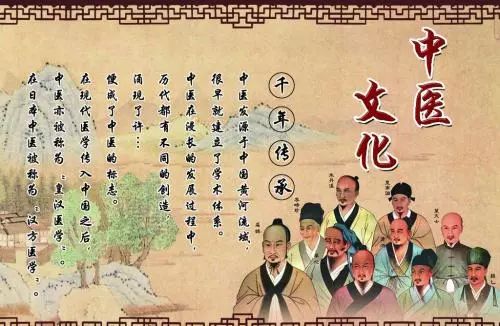 中医
文化
千年传承
中医发源于中国黄河流域,
很早就建立了学术体系。
中医在漫长的发展过程中,
历代都有不同的创造,
涌现了许…
便成了中医的标志。
在现代医学传入中国之后
中医亦被称为:皇汉医学:。
在日本中医被称为:汉方医学:。
朱丹溪
李时珍
扁鹊